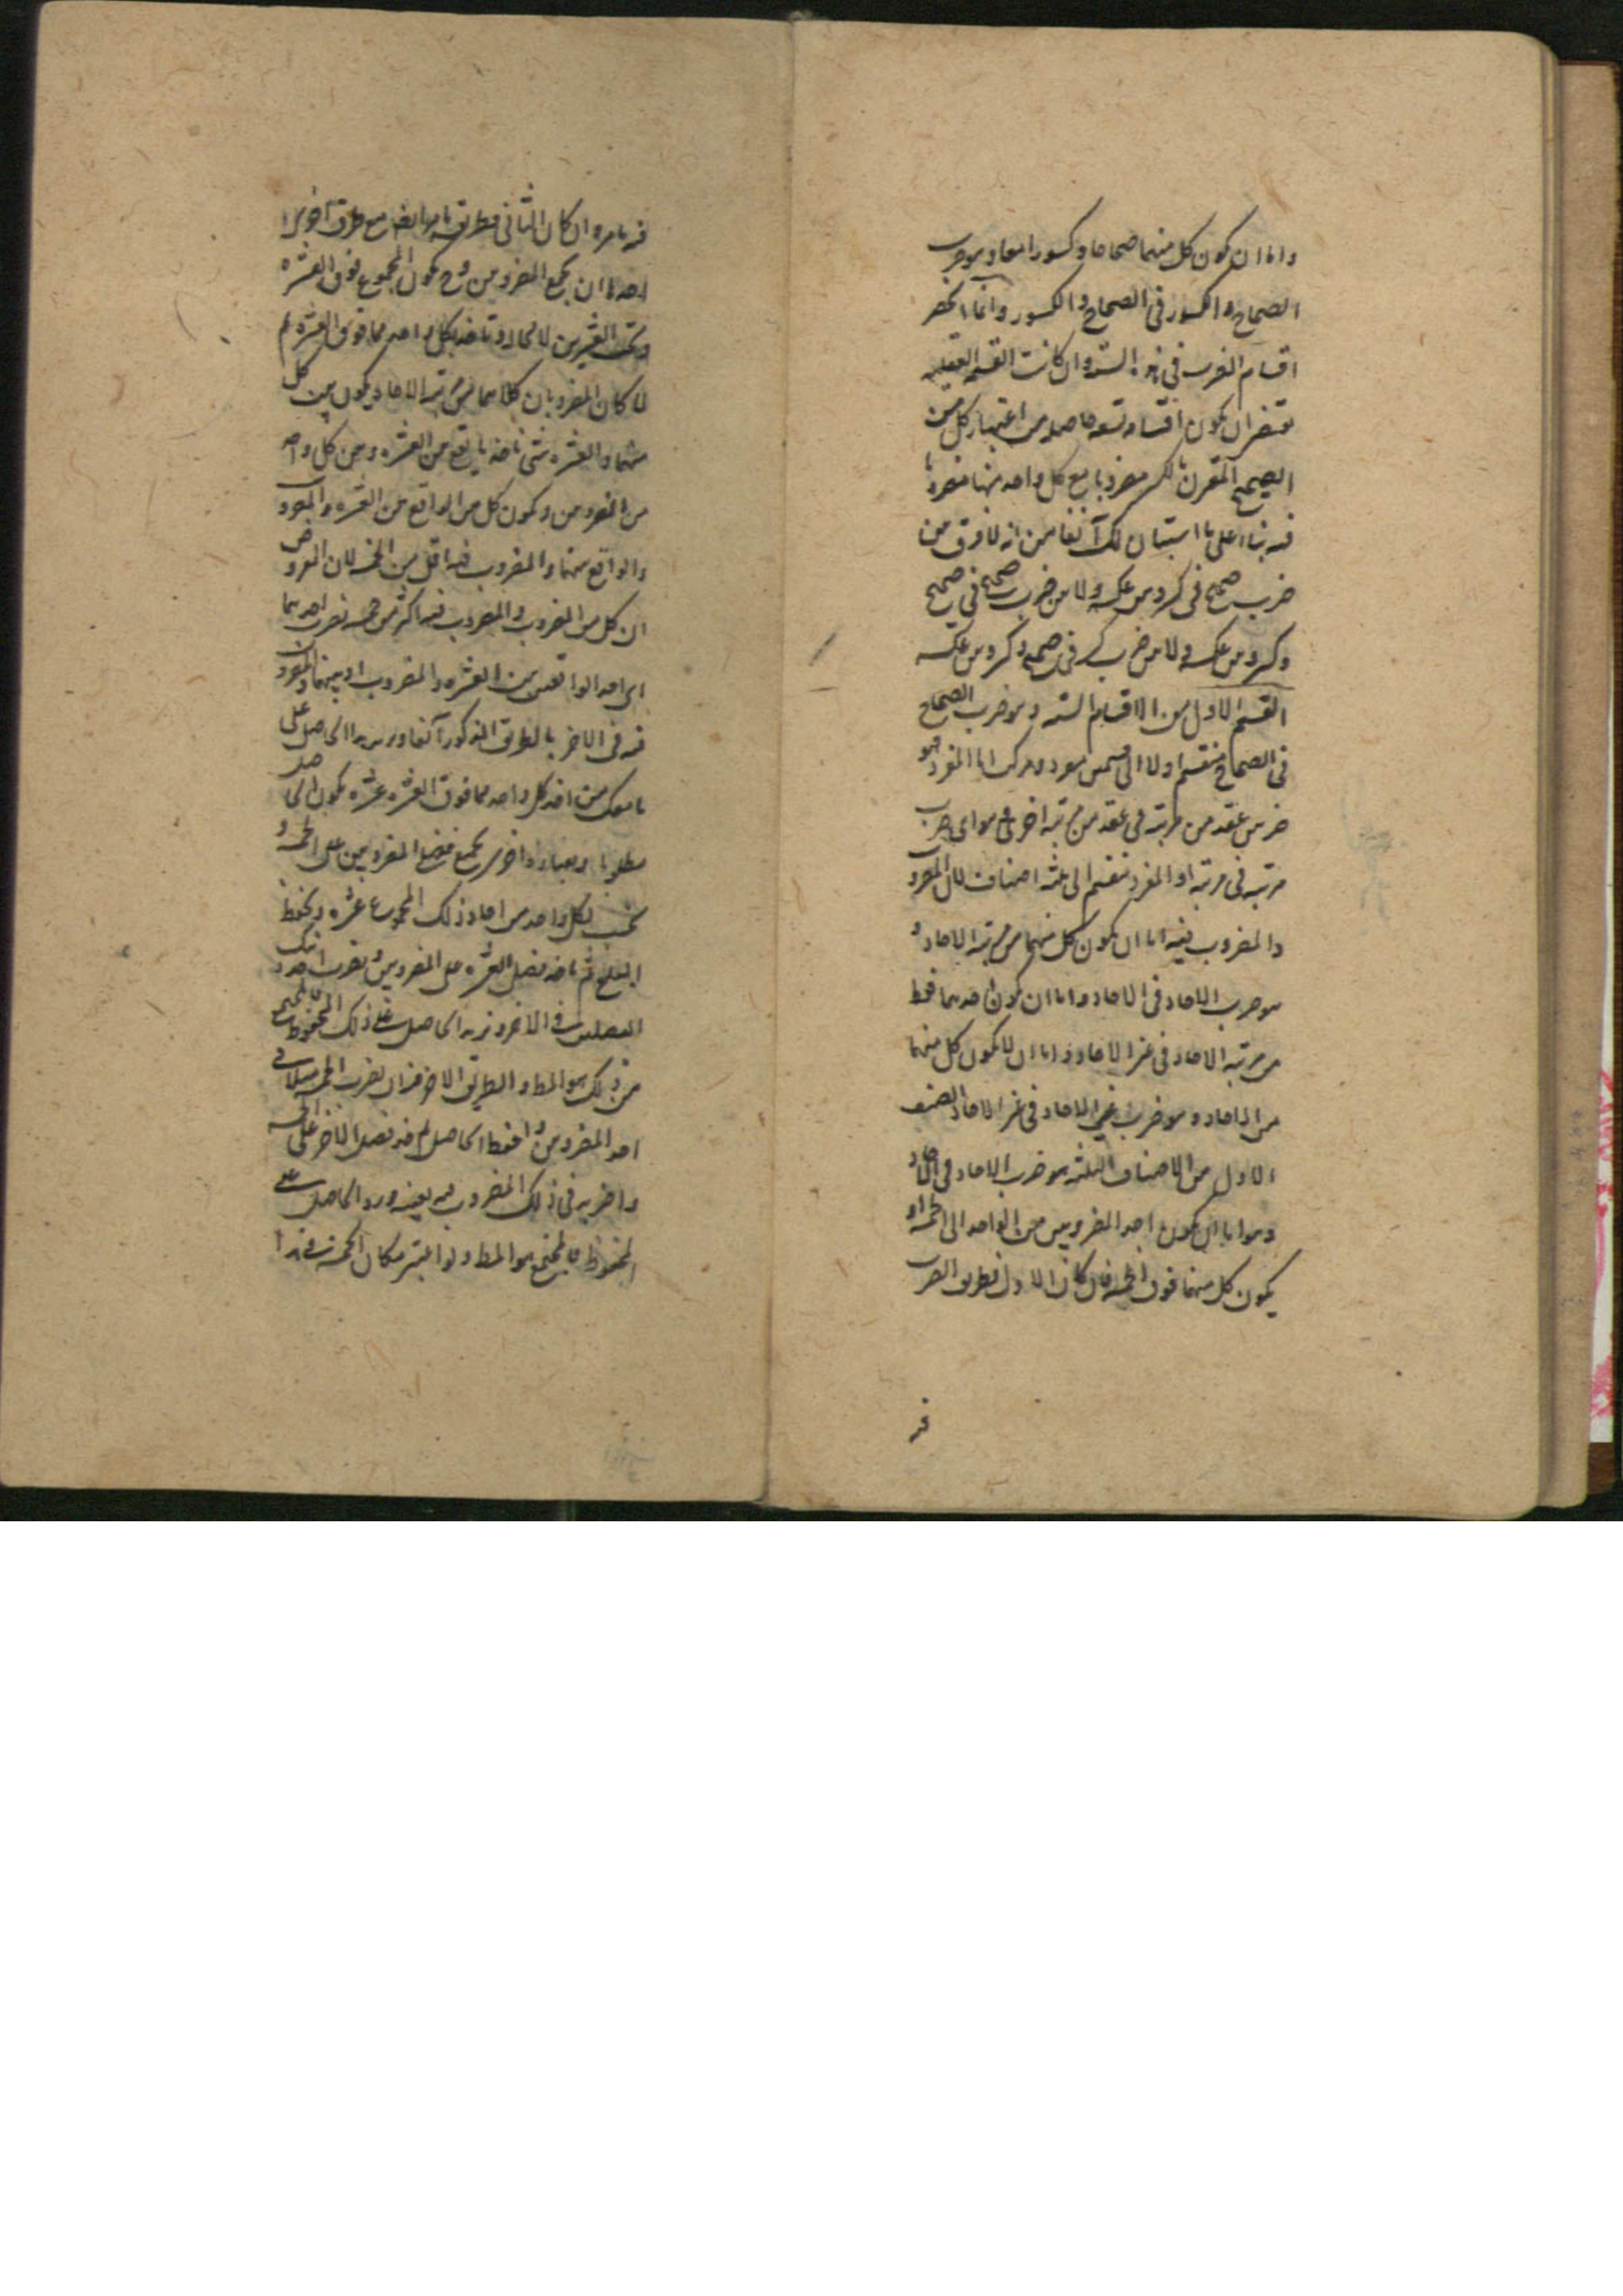 واما ان يكون كل منهما صحاحا وكسورا معا وهو ضرب
الصحاح والكسور فى الصحاح والكسور وانما انحصر
اقسام الضرب فى هذه الستة وان كانت القسمة العقلية
تقتضى ان يكون اقسامه تسعة حاصلة من اعتبار كل من
الصحيح المقرن بالكسر منفردا مع كل واحد منها منفردا
فيه بناء على ما استبان لك آنفا من انه لا فرق بين
ضرب صحيح فى كسر وبين عكسه ولا بين ضرب صحيح فى صحيح
وكسر وبين عكسه ولا بين ضرب كسر فى صحيح وكسر وبين عكسه
القسم الاول من الاقسام الستة وهو ضرب الصحاح
فى الصحاح منقسم اولا الى قسمين مفرد ومركب اما المفرد فهو
ضرب عقد من مرتبة فى عقد من مرتبة اخرى او هو اى ضرب
مرتبة فى مرتبة او المفرد ينقسم الى ثلثة اصناف لان المضروب
والمضروب فيه اما ان يكون كل منهما من مرتبة الاحاد و
هو ضرب الاحاد فى الاحاد واما ان يكون احدهما فقط
من مرتبة الاحاد فى غير الاحاد واما ان لا يكون كل منهما
من الاحاد وهو ضرب غير الاحاد فى غير الاحاد الصنف
الاول من الاصناف الثلثة هو ضرب الاحاد فى الاحاد
وهو اما ان يكون احد المضروبين من الواحد الى الخمسة او
يكون كل منهما فوق الخمسة فان كان الاول فطريق الضرب
فيه
فيه ما مر وان كان الثانى فطريقه ما مر ايضا مع طرق اخرى
احدها ان يجمع المضروبين وح يكون المجموع فوق العشرة
وتحت العشرين لا محالة وتاخذ لكل واحد مما فوق العشرة
لما كان المضروبان كلاهما من مرتبة الاحاد يكون بين كل
منهما والعشرة شئ تاخذ ما يقع بين العشرة وبين كل واحد
من المضروبين ويكون كل من الواقع بين العشرة والمضروب
والواقع بينها والمضروب فيه اقل من الخمسة لان المفروض
ان كل من المضروب والمضروب فيه اكثر من خمسة تضرب احدهما
اى احد الواقعين بين العشرة والمضروب او بينها والمضروب
فيه فى الاخر بالطريق المذكور آنفا وتزيد الحاصل على
ما معك من اخذ كل واحد مما فوق العشرة عشرة يكون الحاصل
مطلوبا وبعبارة اخرى تجمع فضل المضروبين على الخمسة و
تحسب لكل واحد من احاد ذلك المجموع عشرة وتحفظ
المبلغ ثم تاخذ فضل العشرة على المضروبين وتضرب احد
الفضلين فى الاخر وتزيد الحاصل على ذلك المحفوظ فالمجتمع
من ذلك هو المط والطريق الاخر ان تضرب الخمسة مثلا فى
احد المضروبين واحفظ الحاصل ثم خذ فضل الاخر على الخمسة
واضربه فى ذلك المضروب فيه بعينه وزد الحاصل على
المحفوظ فالمجتمع هو المط ولو اعتبر مكان الخمسة فى هذا